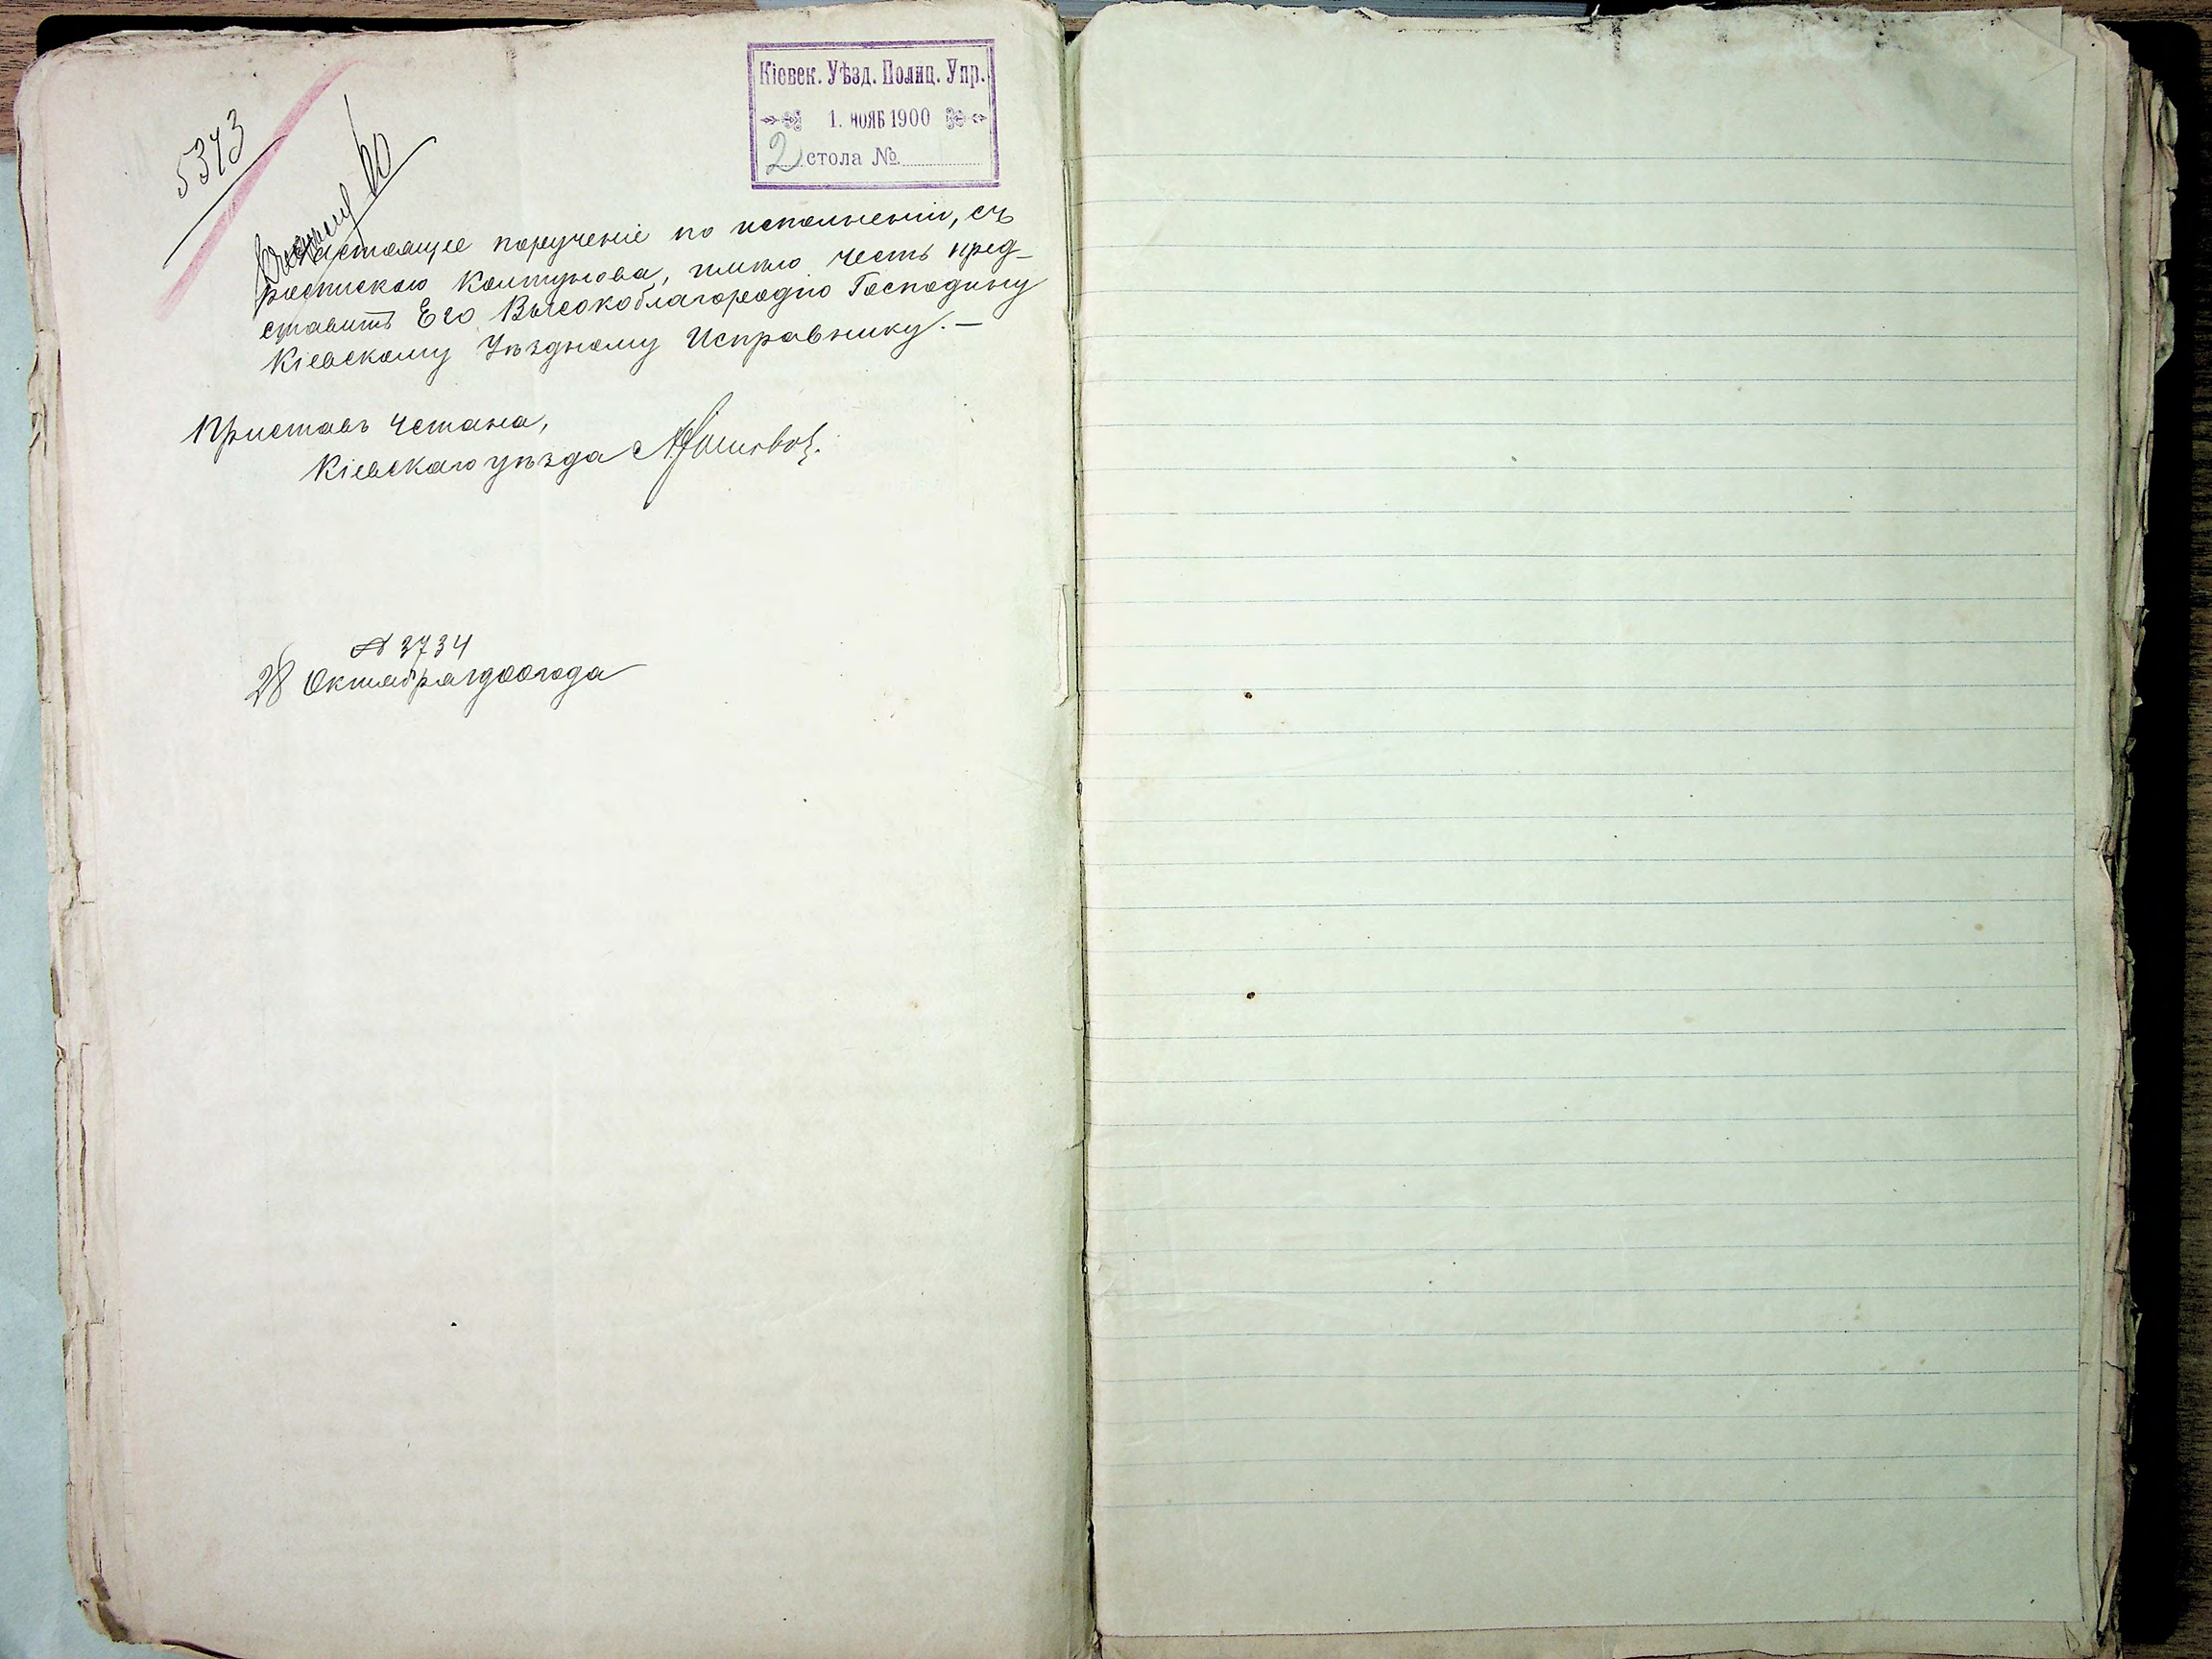 Кіевск. Уѣзд. Полиц. Упр.
1. НОЯБ 1900
2 стола №
5343
Настоящее порученіе по исполненіи, съ
роспискою Колтунова, имѣю честь пред-
ставить Его Высокоблагородію Господину
Кіевскому Уѣздному Исправнику. —
Приставъ 4 стана,
Кіевскаго уѣзда
№ 3734
28 Октября 1900 года